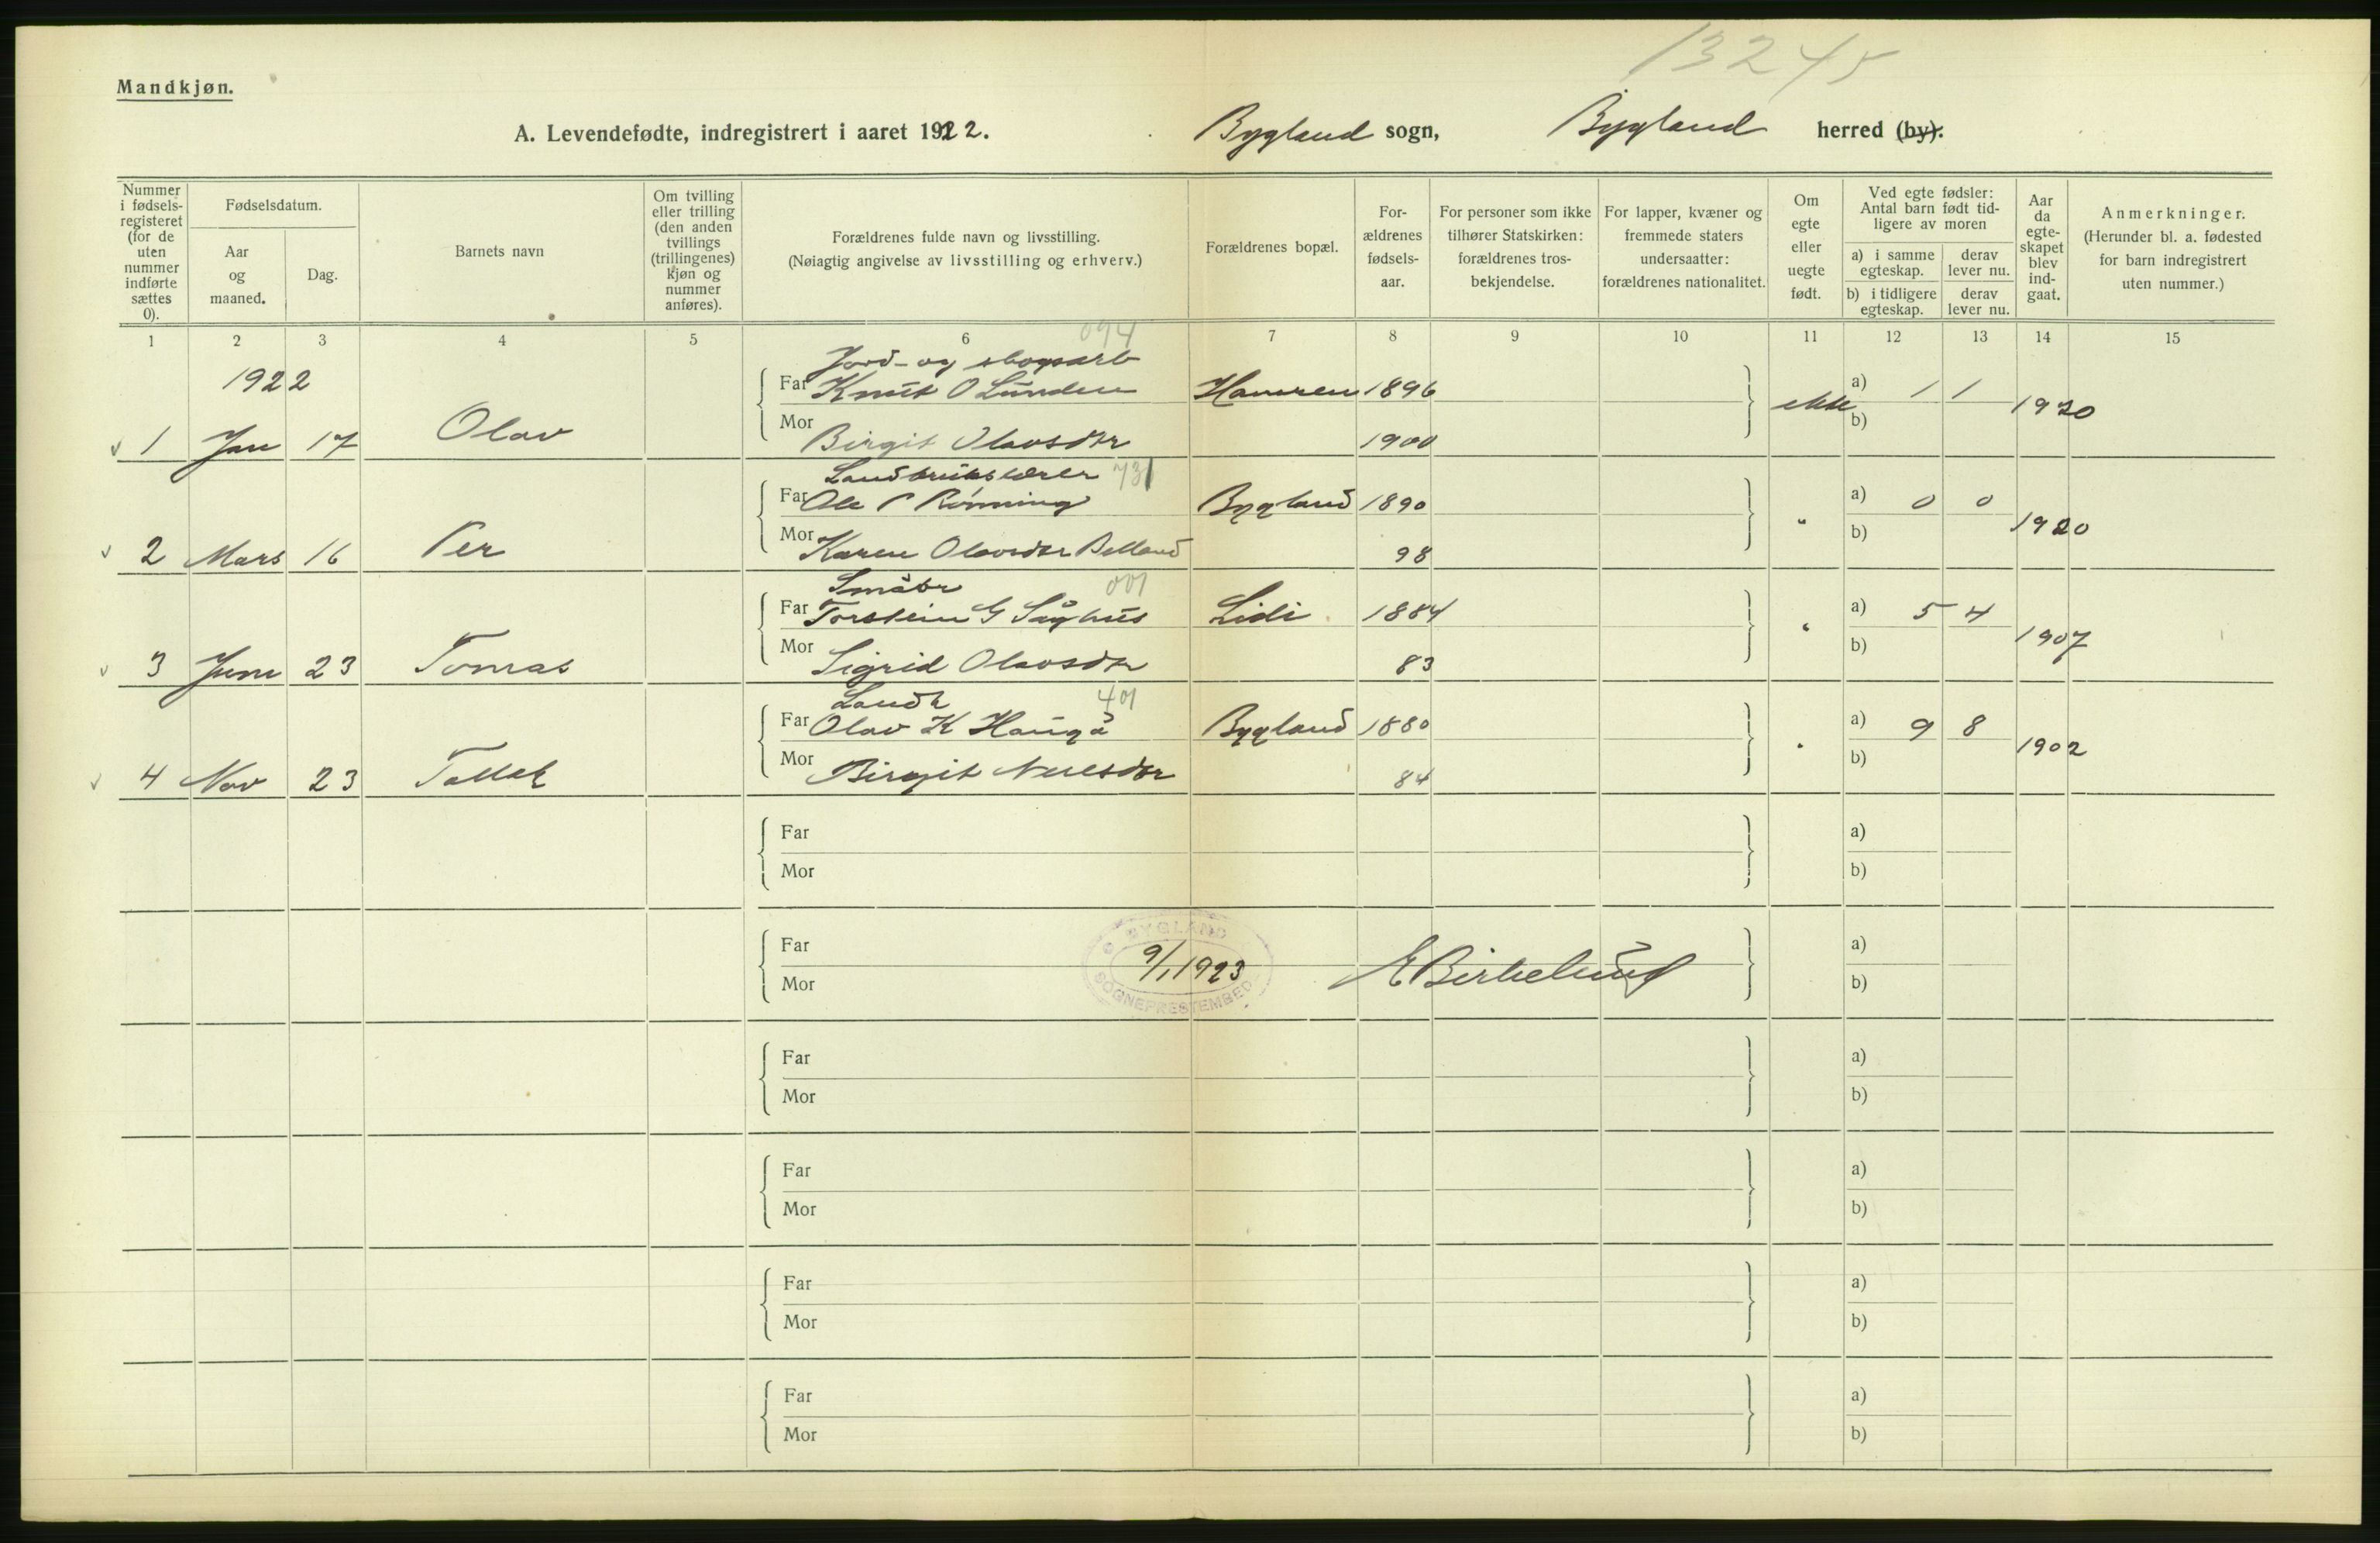 13245
Mandkjøn.
A. Levendefødte, indregistrert i aaret 1922. Bygland sogn, Bygland herred (by).
Nummer i fødselsregisteret (for de uten nummer indførte sættes 0).
Fødselsdatum.
Aar og maaned.
Dag.
Barnets navn
Om tvilling eller trilling (den anden tvillings (trillingenes) kjøn og nummer anføres).
Forældrenes fulde navn og livsstilling.
(Nøiagtig angivelse av livsstilling og erhverv.)
Forældrenes bopæl.
Forældrenes fødselsaar.
For personer som ikke tilhører Statskirken: forældrenes trosbekjendelse.
For lapper, kvæner og fremmede staters undersaatter: forældrenes nationalitet.
Om egte eller uegte født.
Ved egte fødsler: Antal barn født tidligere av moren
a) i samme egteskap. derav lever nu.
b) i tidligere egteskap. derav lever nu.
Aar da egteskapet blev indgaat.
Anmerkninger.
(Herunder bl. a. fødested for barn indregistrert uten nummer.)
1 2 3 4 5 6 7 8 9 10 11 12 13 14 15
094
1922 Jord- og skogsarb
Far Knut O Lunden Hamren 1896 a) 1 1
1 Jan 17 Olav Mor Birgit Olavsdtr 1900 b) 1920
Landbrukslærer 731
Far Ole P Rønning Bygland 1890 " a) 0 0
2 Mars 16 Per Mor Karen Olavsdtr 98 b) 1920
Småbr 001
Far Torstein G Såghus Lidi 1884 " a) 5 4
3 Juni 23 Tomas Mor Sigrid Olavsdtr 83 b) 1907
Landh 401
Far Olav K Haugå Bygland 1880 " a) 9 8
4 Nov 23 Tallak Mor Birgit 84 b) 1902
Far a)
Mor b)
BYGLAND SOGNEPRESTEMBED
Far 9/1 1923 E Birkelund a)
Mor b)
Far a)
Mor b)
Far a)
Mor b)
Far a)
Mor b)
Far a)
Mor b)